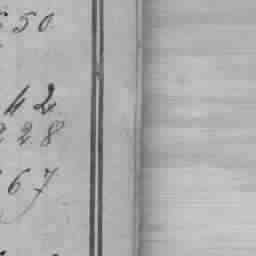 550
42
228
67